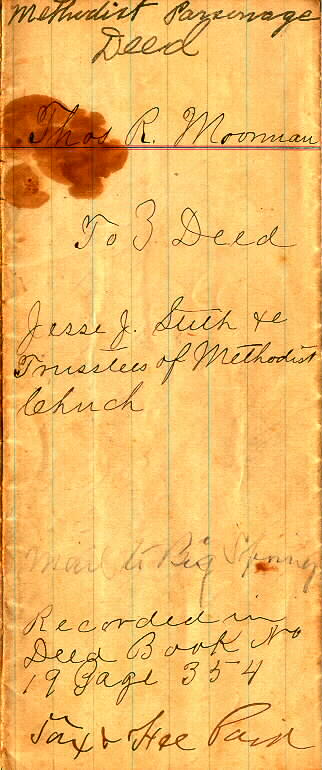 Methodist Parsonage
Deed
Thos R. Moorman
To } Deed
Jesse J. Stith &c
Trusstees of Methodist
Chuch
Mail to Big Spring
Recorded in
Deed Book No
19 Page 354
Tax & Fee Paid